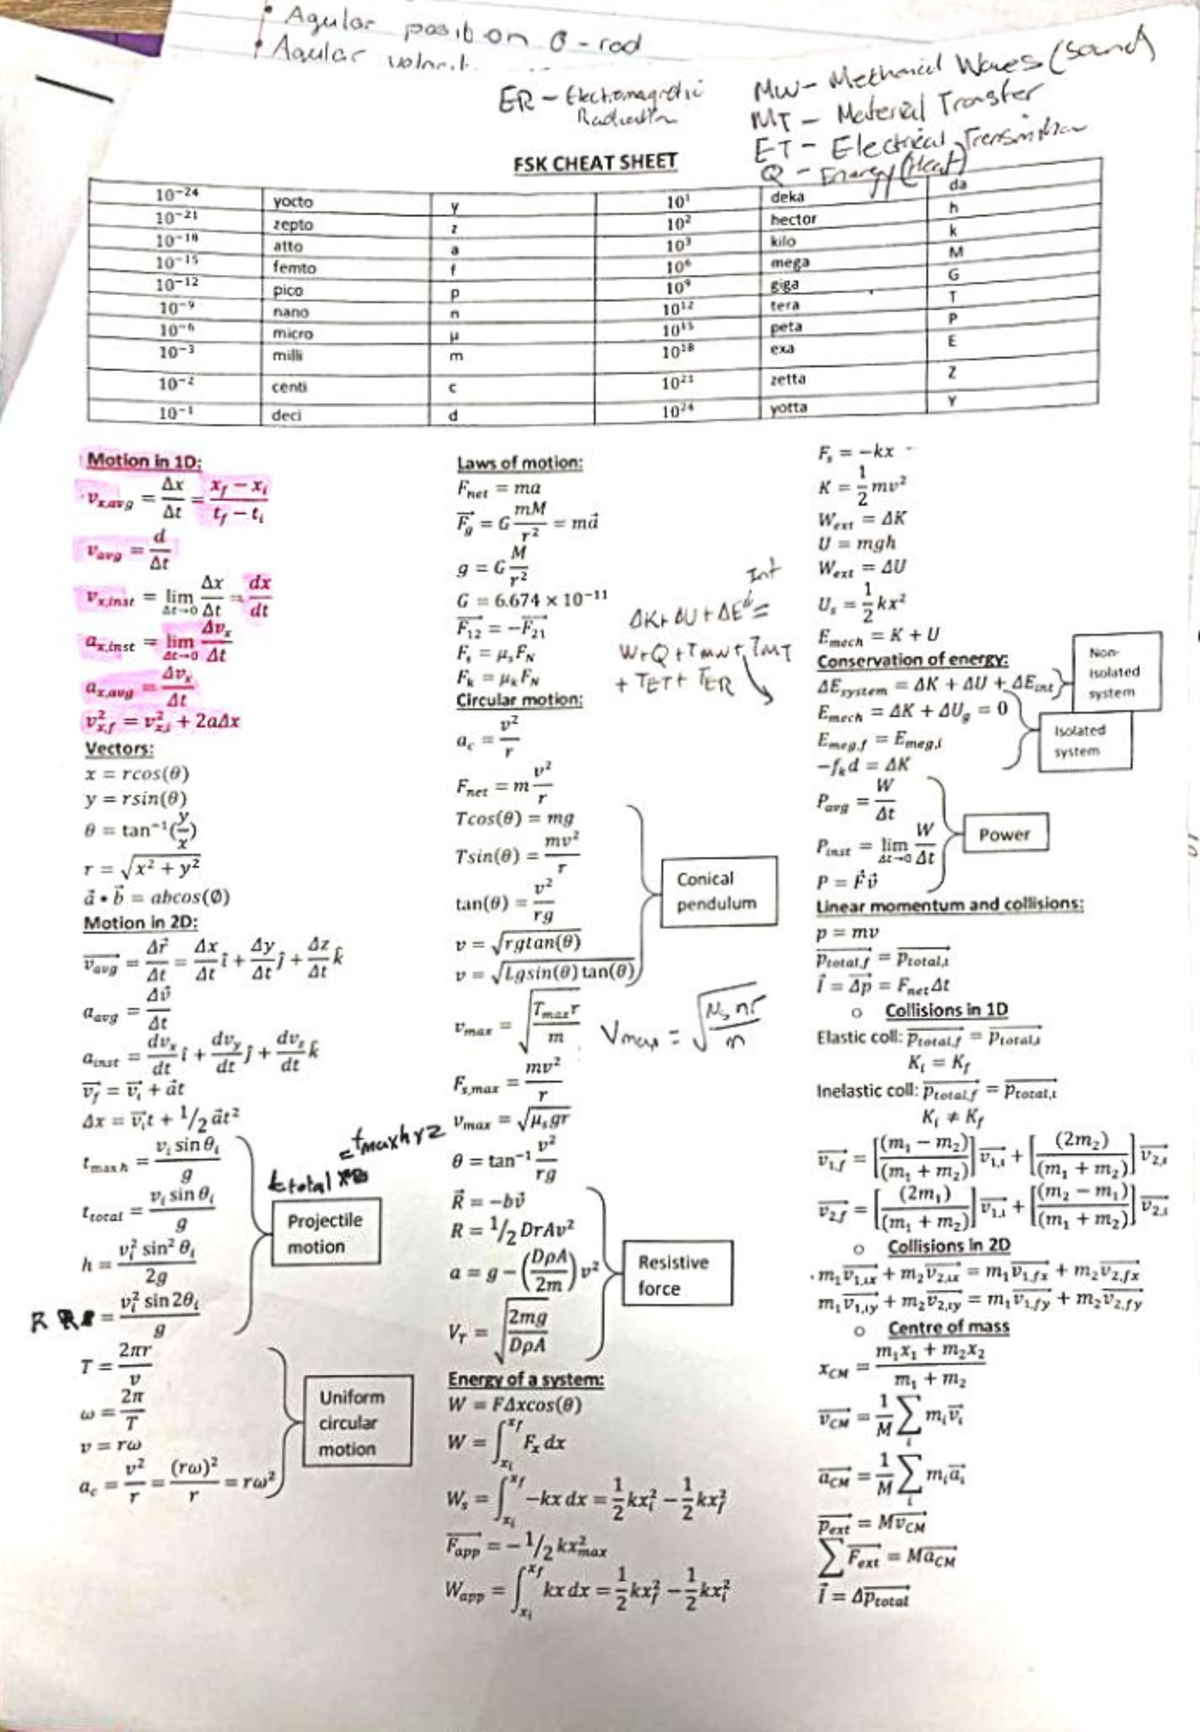 Agular position θ - rad
Agular
ER - Electromagnetic
Radiation
MW - Methanical Waves (Sound)
MT - Material Transfer
ET - Electrical Transmition
Q - Energy (Heat)
FSK CHEAT SHEET
10⁻²⁴ yocto y 10¹ deka da
10⁻²¹ zepto z 10² hector h
10⁻¹⁸ atto a 10³ kilo k
10⁻¹⁵ femto f 10⁶ mega M
10⁻¹² pico p 10⁹ giga G
10⁻⁹ nano n 10¹² tera T
10⁻⁶ micro μ 10¹⁵ peta P
10⁻³ milli m 10¹⁸ exa E
10⁻² centi c 10²¹ zetta Z
10⁻¹ deci d 10²⁴ yotta Y
Motion in 1D:
v_{x,avg} = Δx/Δt = (x_f − x_i)/(t_f − t_i)
v_{avg} = d/Δt
v_{x,inst} = lim_{Δt→0} Δx/Δt = dx/dt
a_{x,inst} = lim_{Δt→0} Δv_x/Δt
a_{x,avg} = Δv_x/Δt
v²_{x,f} = v²_{x,i} + 2aΔx
Vectors:
x = rcos(θ)
y = rsin(θ)
θ = tan⁻¹(y/x)
r = √(x² + y²)
a⃗ • b⃗ = abcos(Ø)
Motion in 2D:
v_{avg}⃗ = Δr⃗/Δt = Δx/Δt î + Δy/Δt ĵ + Δz/Δt k̂
a_{avg} = Δv⃗/Δt
a_{inst} = dv_x/dt î + dv_y/dt ĵ + dv_z/dt k̂
v_f⃗ = v_i⃗ + a⃗t
Δx = v_i⃗t + 1/2 a⃗t²
t_{max h} = v_i sin θ_i / g
t_{total} = v_i sin θ_i / g
t total
= t max h x 2
h = v_i² sin² θ_i / 2g
R = v_i² sin 2θ_i / g
Projectile motion
T = 2πr/v
ω = 2π/T
v = rω
a_c = v²/r = (rω)²/r = rω²
Uniform circular motion
Laws of motion:
F_{net} = ma
F_g⃗ = G mM/r² = ma⃗
g = G M/r²
G = 6.674 × 10⁻¹¹
F₁₂⃗ = −F₂₁⃗
F_s = μ_sF_N
F_k = μ_kF_N
Circular motion:
a_c = v²/r
F_{net} = m v²/r
Tcos(θ) = mg
Tsin(θ) = mv²/r
tan(θ) = v²/rg
v = √(rgtan(θ))
v = √(Lgsin(θ)tan(θ))
Conical pendulum
v_{max} = √(T_{max}r/m)
V_{max} = √(μ_s nr/m)
F_{s,max} = mv²/r
v_{max} = √(μ_sgr)
θ = tan⁻¹ v²/rg
R⃗ = −bv⃗
R = 1/2 DrAv²
a = g − (DρA/2m)v²
V_T = √(2mg/DρA)
Resistive force
Energy of a system:
W = FΔxcos(θ)
W = ∫_{x_i}^{x_f} F_x dx
W_s = ∫_{x_i}^{x_f} −kx dx = 1/2 kx_i² − 1/2 kx_f²
F_{app}⃗ = −1/2 kx²_{max}
W_{app} = ∫_{x_i}^{x_f} kx dx = 1/2 kx_f² − 1/2 kx_i²
Int
ΔK + ΔU + ΔE =
W + Q + T_{MW} + T_{MT}
+ T_{ET} + T_{ER}
F_s = −kx
K = 1/2 mv²
W_{ext} = ΔK
U = mgh
W_{ext} = ΔU
U_s = 1/2 kx²
E_{mech} = K + U
Conservation of energy:
ΔE_{system} = ΔK + ΔU + ΔE_{int}
Non-isolated system
E_{mech} = ΔK + ΔU_g = 0
E_{meg,f} = E_{meg,i}
−f_kd = ΔK
Isolated system
P_{avg} = W/Δt
P_{inst} = lim_{Δt→0} W/Δt
P = F⃗v⃗
Power
Linear momentum and collisions:
p = mv
p_{total,f}⃗ = p_{total,i}⃗
I⃗ = Δp⃗ = F_{net}Δt
o Collisions in 1D
Elastic coll: p_{total,f}⃗ = p_{total,i}⃗
K_i = K_f
Inelastic coll: p_{total,f}⃗ = p_{total,i}⃗
K_i ≠ K_f
v_{1,f}⃗ = [(m₁ − m₂)/(m₁ + m₂)] v_{1,i}⃗ + [(2m₂)/(m₁ + m₂)] v_{2,i}⃗
v_{2,f}⃗ = [(2m₁)/(m₁ + m₂)] v_{1,i}⃗ + [(m₂ − m₁)/(m₁ + m₂)] v_{2,i}⃗
o Collisions in 2D
m₁v_{1,ix}⃗ + m₂v_{2,ix}⃗ = m₁v_{1,fx}⃗ + m₂v_{2,fx}⃗
m₁v_{1,iy}⃗ + m₂v_{2,iy}⃗ = m₁v_{1,fy}⃗ + m₂v_{2,fy}⃗
o Centre of mass
x_{CM} = (m₁x₁ + m₂x₂)/(m₁ + m₂)
v_{CM}⃗ = 1/M ∑_i m_iv_i⃗
a_{CM}⃗ = 1/M ∑_i m_ia_i⃗
p_{ext}⃗ = Mv_{CM}⃗
∑F_{ext}⃗ = Ma_{CM}⃗
I⃗ = Δp_{total}⃗